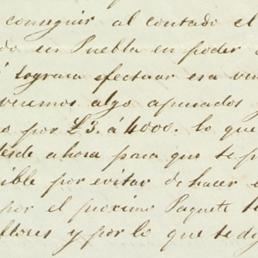 conseguir al contado el
do en Puebla en poder
lograra efectuar esa ven
veremos algo apurados
o por £3. á 4000. lo que
desde ahora para que se p
ible por evitar de hacer
por el proximo Paquete
llones y por lo que te di